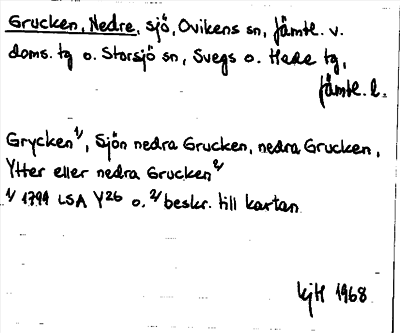 Grucken, Nedre, sjö, Ovikens sn, Jämtl. v.
doms. tg o. Storsjö sn, Svegs o. Hede tg,
Jämtl. l.
Grycken 1/, Sjön nedra Grucken, nedra Grucken,
Ytter eller nedra Grucken 2/
1/ 1799 LSA Y26 o. 2/ beskr. till kartan
1968